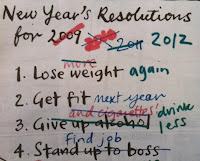 New Year's Resolutions
for 2009 2010 2011 2012
more
1. Lose weight again
2. Get fit next year
and cigarettes! drink
3. Give up alcohol less
Find job
4. Stand up to boss